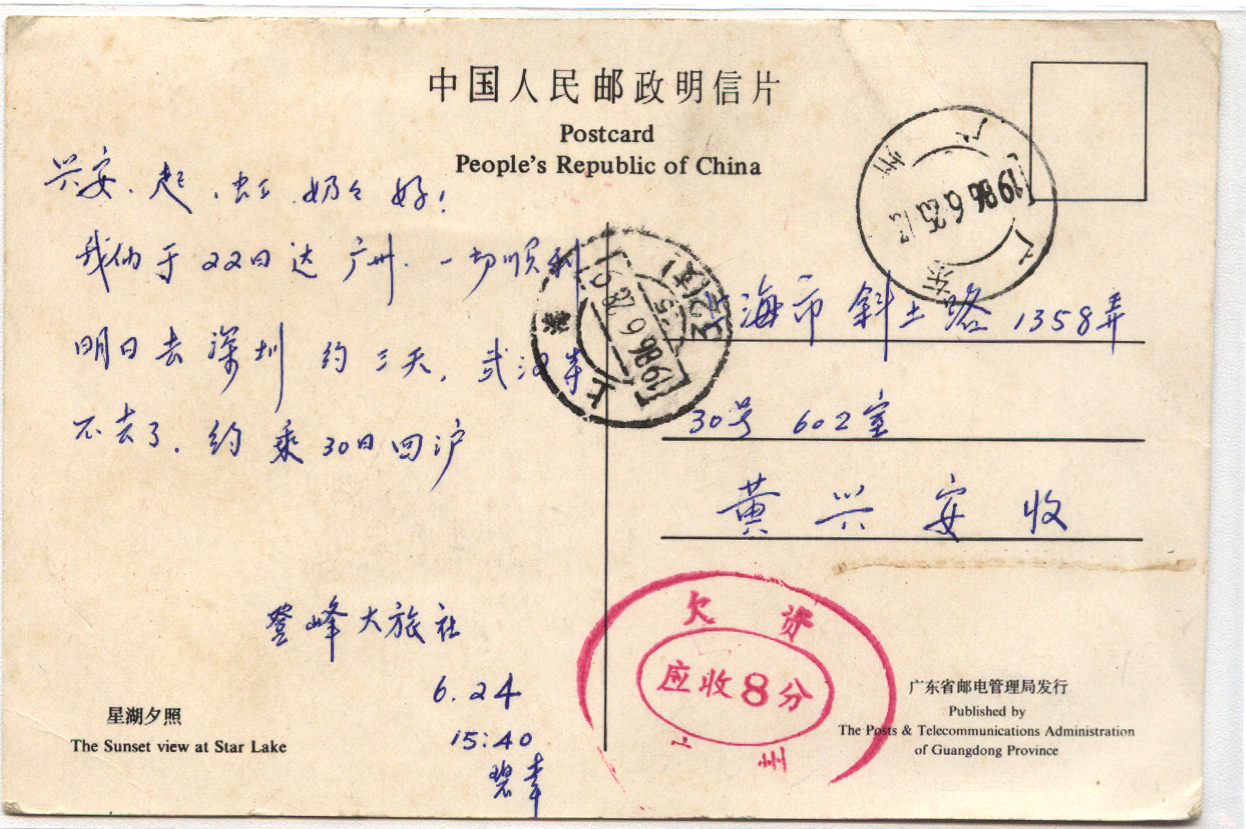 中国人民邮政明信片
Postcard
People's Republic of China
兴安、赴、虹、奶々好!
我们于22日达广州.一切顺利
明日去深圳 约三天, 武汉
不去了.约乘30日回沪
登峰大旅社
6.24
15:40
星湖夕照
The Sunset view at Star Lake
广州
1986.6.25.
广东
上海
1986.6.28
上海市斜土路1358弄
30号 602室
黄兴安收
欠资
应收8分
广州
广东省邮电管理局发行
Published by
The Posts & Telecommunications Administration
of Guangdong Province